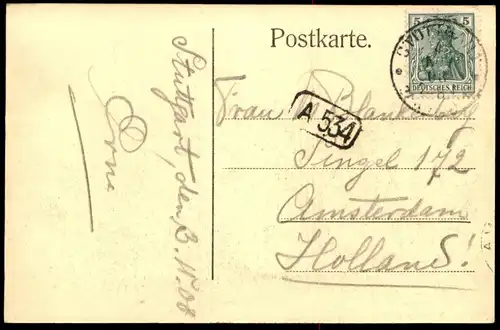 Postkarte.
5 5
DEUTSCHES REICH
A 534
Stuttgart, den 3. 11. 08
Frau
Singel 172
Amsterdam
Holland!